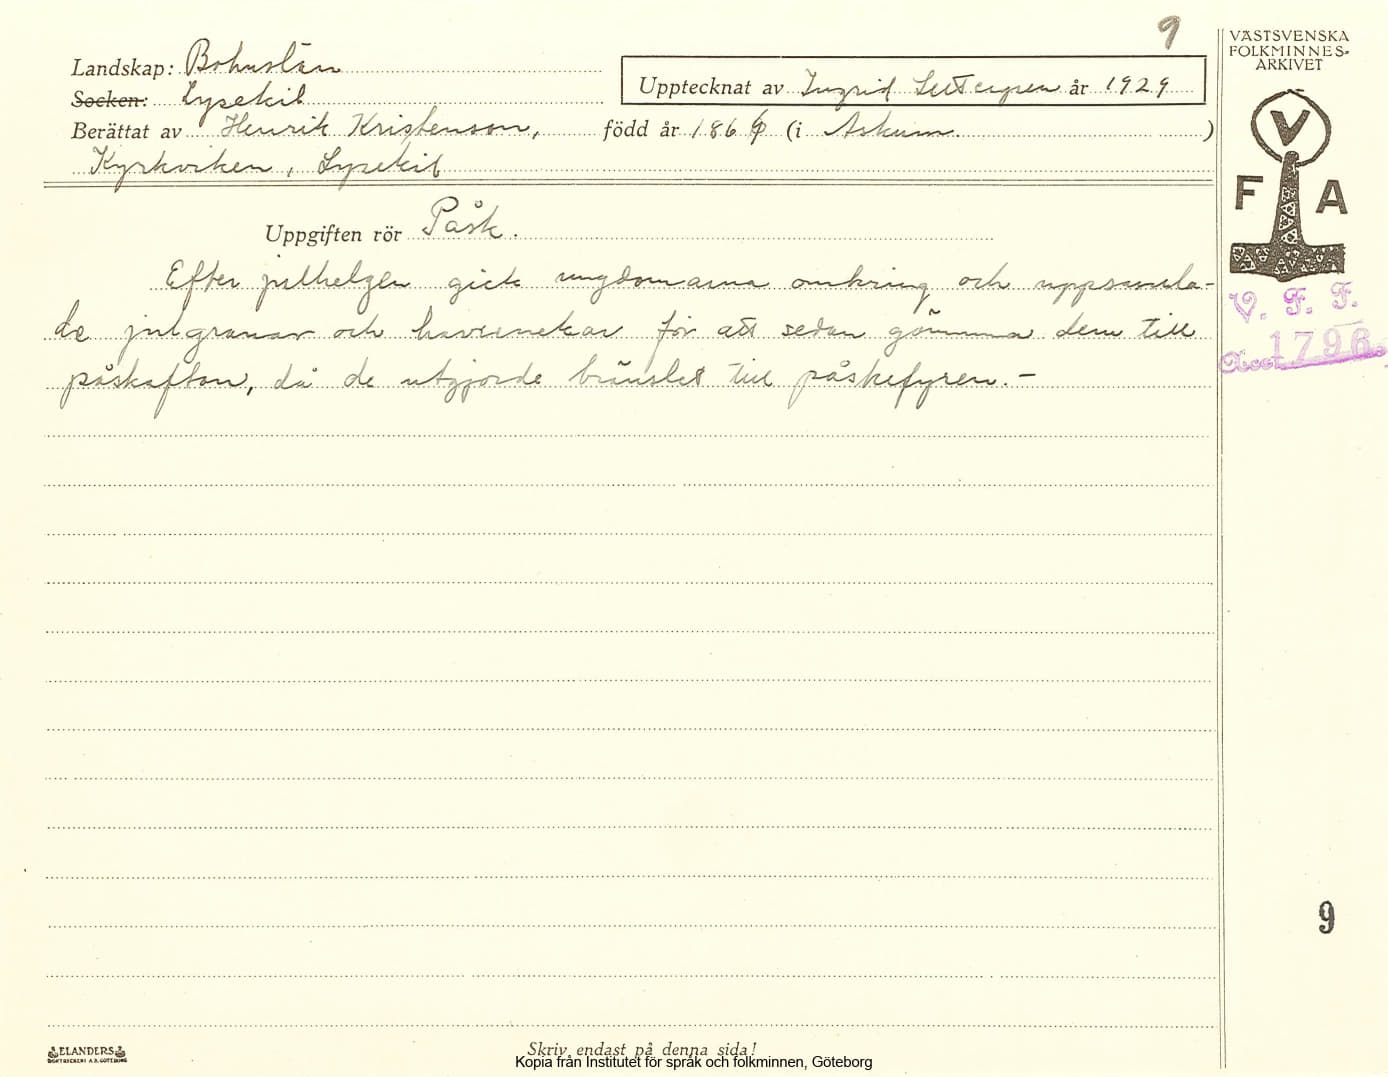 9
VÄSTSVENSKA
FOLKMINNES-
ARKIVET
Landskap: Bohuslän
Socken: Lysekil
Upptecknat av Ingrid år 1929
Berättat av Henrik Kristenson, född år 186 (i Askum. )
Kyrkviken, Lysekil
V
F A
Uppgiften rör Påsk.
Efter julhelgen gick ungdomarna omkring och uppsamla-
de julgranar och havrenekar för att sedan gömma dem till
påskafton, då de utgjorde bränslet till påskefyren. —
V. F. F.
Acc. 1796
9
ELANDERS
BOKTRYCKERI A.B. GÖTEBORG
Skriv endast på denna sida!
Kopia från Institutet för språk och folkminnen, Göteborg